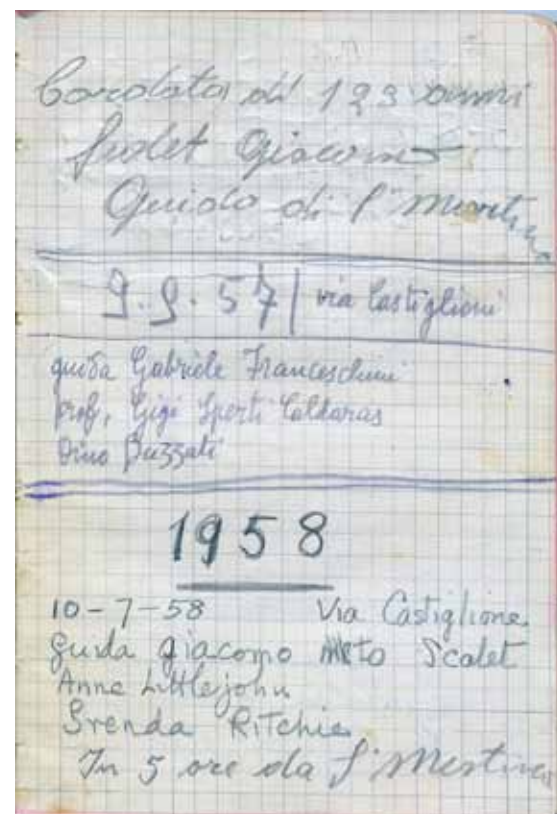 Cordata di 123 anni
Scalet Giacomo
Guida di S. Martino
9.9.57 | via Castiglioni
guida Gabriele Franceschini
prof. Gigi Sperti Caldaras
Dino Buzzati
1958
10-7-58 Via Castiglione
Guida Giacomo Scalet
Anne Littlejohn
Brenda Ritchie
In 5 ore da S. Martino